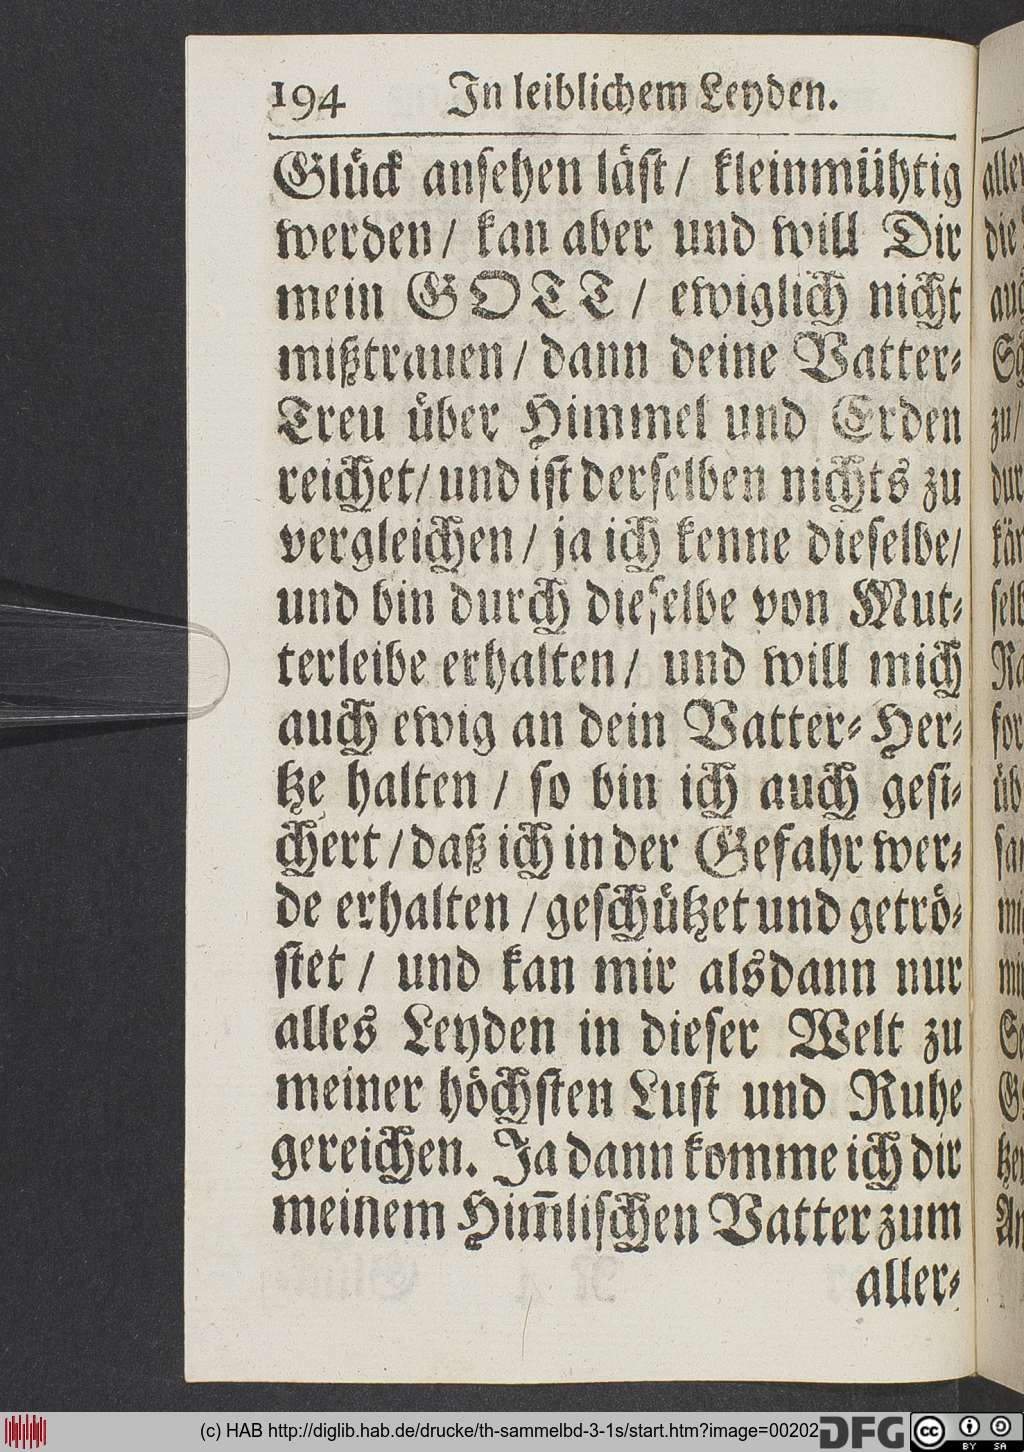 194 In leiblichem Leyden.
Glück ansehen läst / kleinmühtig
werden / kan aber und will Dir
mein GOTT / ewiglich nicht
mißtrauen / dann deine Vatter-
Treu über Himmel und Erden
reichet / und ist derselben nichts zu
vergleichen / ja ich kenne dieselbe /
und bin durch dieselbe von Mut-
terleibe erhalten / und will mich
auch ewig an dein Vatter-Her-
tze halten / so bin ich auch gesi-
chert / daß ich in der Gefahr wer-
de erhalten / geschützet und getrö-
stet / und kan mir alsdann nur
alles Leyden in dieser Welt zu
meiner höchsten Lust und Ruhe
gereichen. Ja dann komme ich dir
meinem Him̄lischen Vatter zum
aller-
(c) HAB http://diglib.hab.de/drucke/th-sammelbd-3-1s/start.htm?image=00202
DFG
cc BY SA